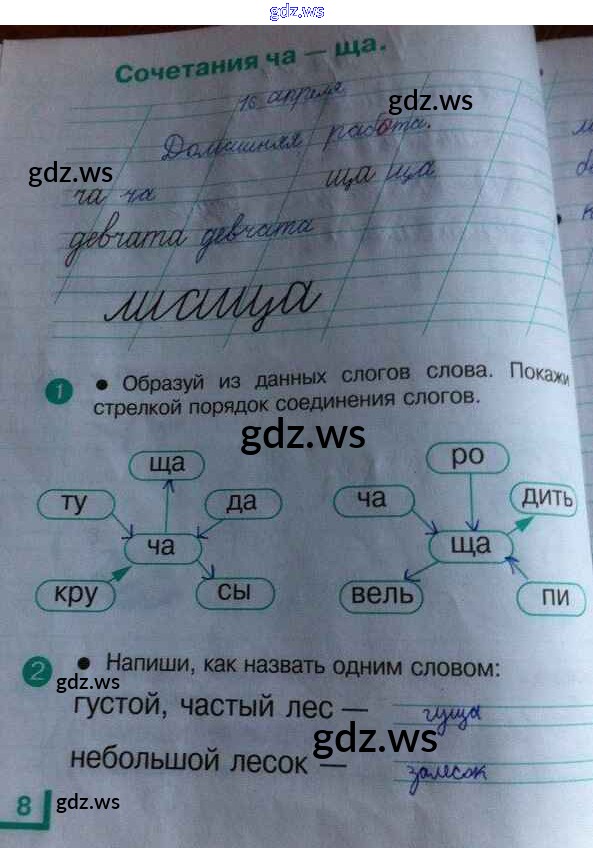 gdz.ws
Сочетания ча — ща.
16 апреля
gdz.ws
Домашняя работа.
gdz.ws
ча ча ща ща
девчата девчата
лисица
1 • Образуй из данных слогов слова. Покажи
стрелкой порядок соединения слогов.
gdz.ws
ща
ро
ту
да
ча
дить
ча
ща
кру
сы
вель
пи
2 • Напиши, как назвать одним словом:
gdz.ws
густой, частый лес — гуща
gdz.ws
небольшой лесок — залесок
8
gdz.ws